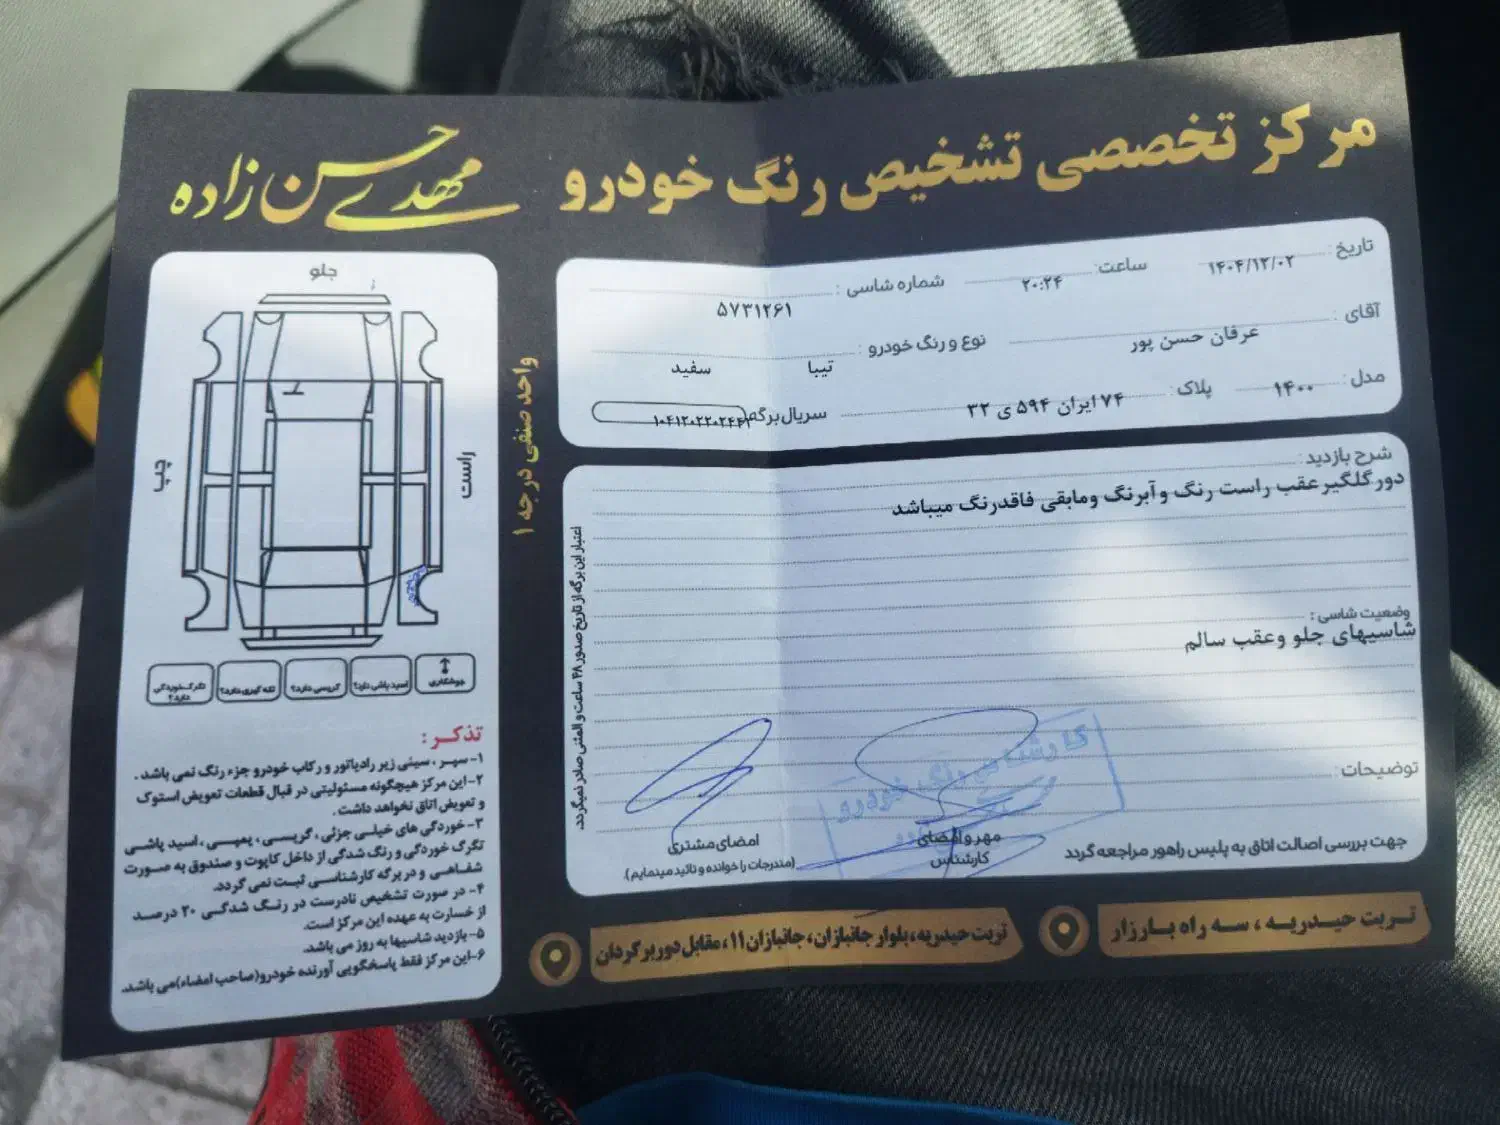 مرکز تخصصی تشخیص رنگ خودرو
مهدی حسن زاده
تاریخ: ۱۴۰۴/۱۲/۰۲ ساعت: ۲۰:۲۴ شماره شاسی: ۵۷۳۱۲۶۱
آقای: عرفان حسن پور نوع و رنگ خودرو: تیبا سفید
مدل: ۱۴۰۰ پلاک: ۷۴ ایران ۵۹۴ ی ۳۲ سریال برگه
شرح بازدید:
دور گلگیر عقب راست رنگ و آبرنگ ومابقی فاقدرنگ میباشد
وضعیت شاسی:
شاسیهای جلو وعقب سالم
توضیحات:
جهت بررسی اصالت اتاق به پلیس راهور مراجعه گردد
مهر و امضای
کارشناس
امضای مشتری
(مندرجات را خوانده و تائید مینمایم).
کارشناس رنگ خودرو
اعتبار این برگه از تاریخ صدور ۴۸ ساعت و المثنی صادر نمیگردد.
واحد صنفی درجه ۱
جلو
چپ
راست
جوشکاری
اسید پاشی دارد؟
گریسی دارد؟
لکه گیری دارد؟
تگرگ خوردگی
دارد؟
تذکر:
۱- سپر، سینی زیر رادیاتور و رکاب خودرو جزء رنگ نمی باشد.
۲- این مرکز هیچگونه مسئولیتی در قبال قطعات تعویض استوک
و تعویض اتاق نخواهد داشت.
۳- خوردگی های خیلی جزئی، گریسی، پمپی، اسید پاشی
تگرگ خوردگی و رنگ شدگی از داخل کاپوت و صندوق به صورت
شفاهی و در برگه کارشناسی ثبت نمی گردد.
۴- در صورت تشخیص نادرست در رنگ شدگی ۲۰ درصد
از خسارت به عهده این مرکز است.
۵- بازدید شاسیها به روز می باشد.
۶- این مرکز فقط پاسخگویی آورنده خودرو(صاحب امضاء)می باشد.
تربت حیدریه، سه راه بارزار
تربت حیدریه، بلوار جانبازان، جانبازان ۱۱، مقابل دوربرگردان